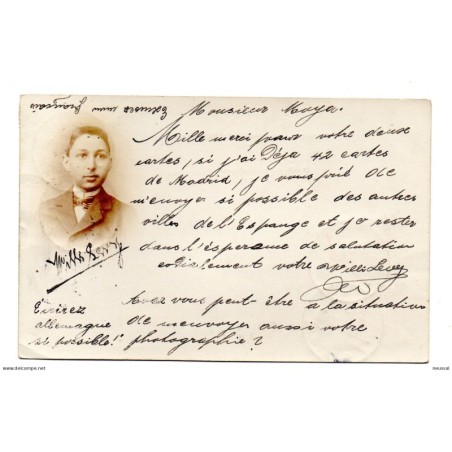 Excusez mon français
Monsieur Moya.
Mille merci pour votre deux
cartes, si j'ai Déja 42 cartes
de Madrid, je vous prie de
m'envoyer si possible des autres
villes de l'Espange et je rester
dans l'ésperance de salutation
votre Willi Levy
Willi Levy
Avez vous peut-être a la situation
de m'envoyer aussi votre
photographie?
Ecrivez
allemaque
si possible!
www.delcampe.net
neussal